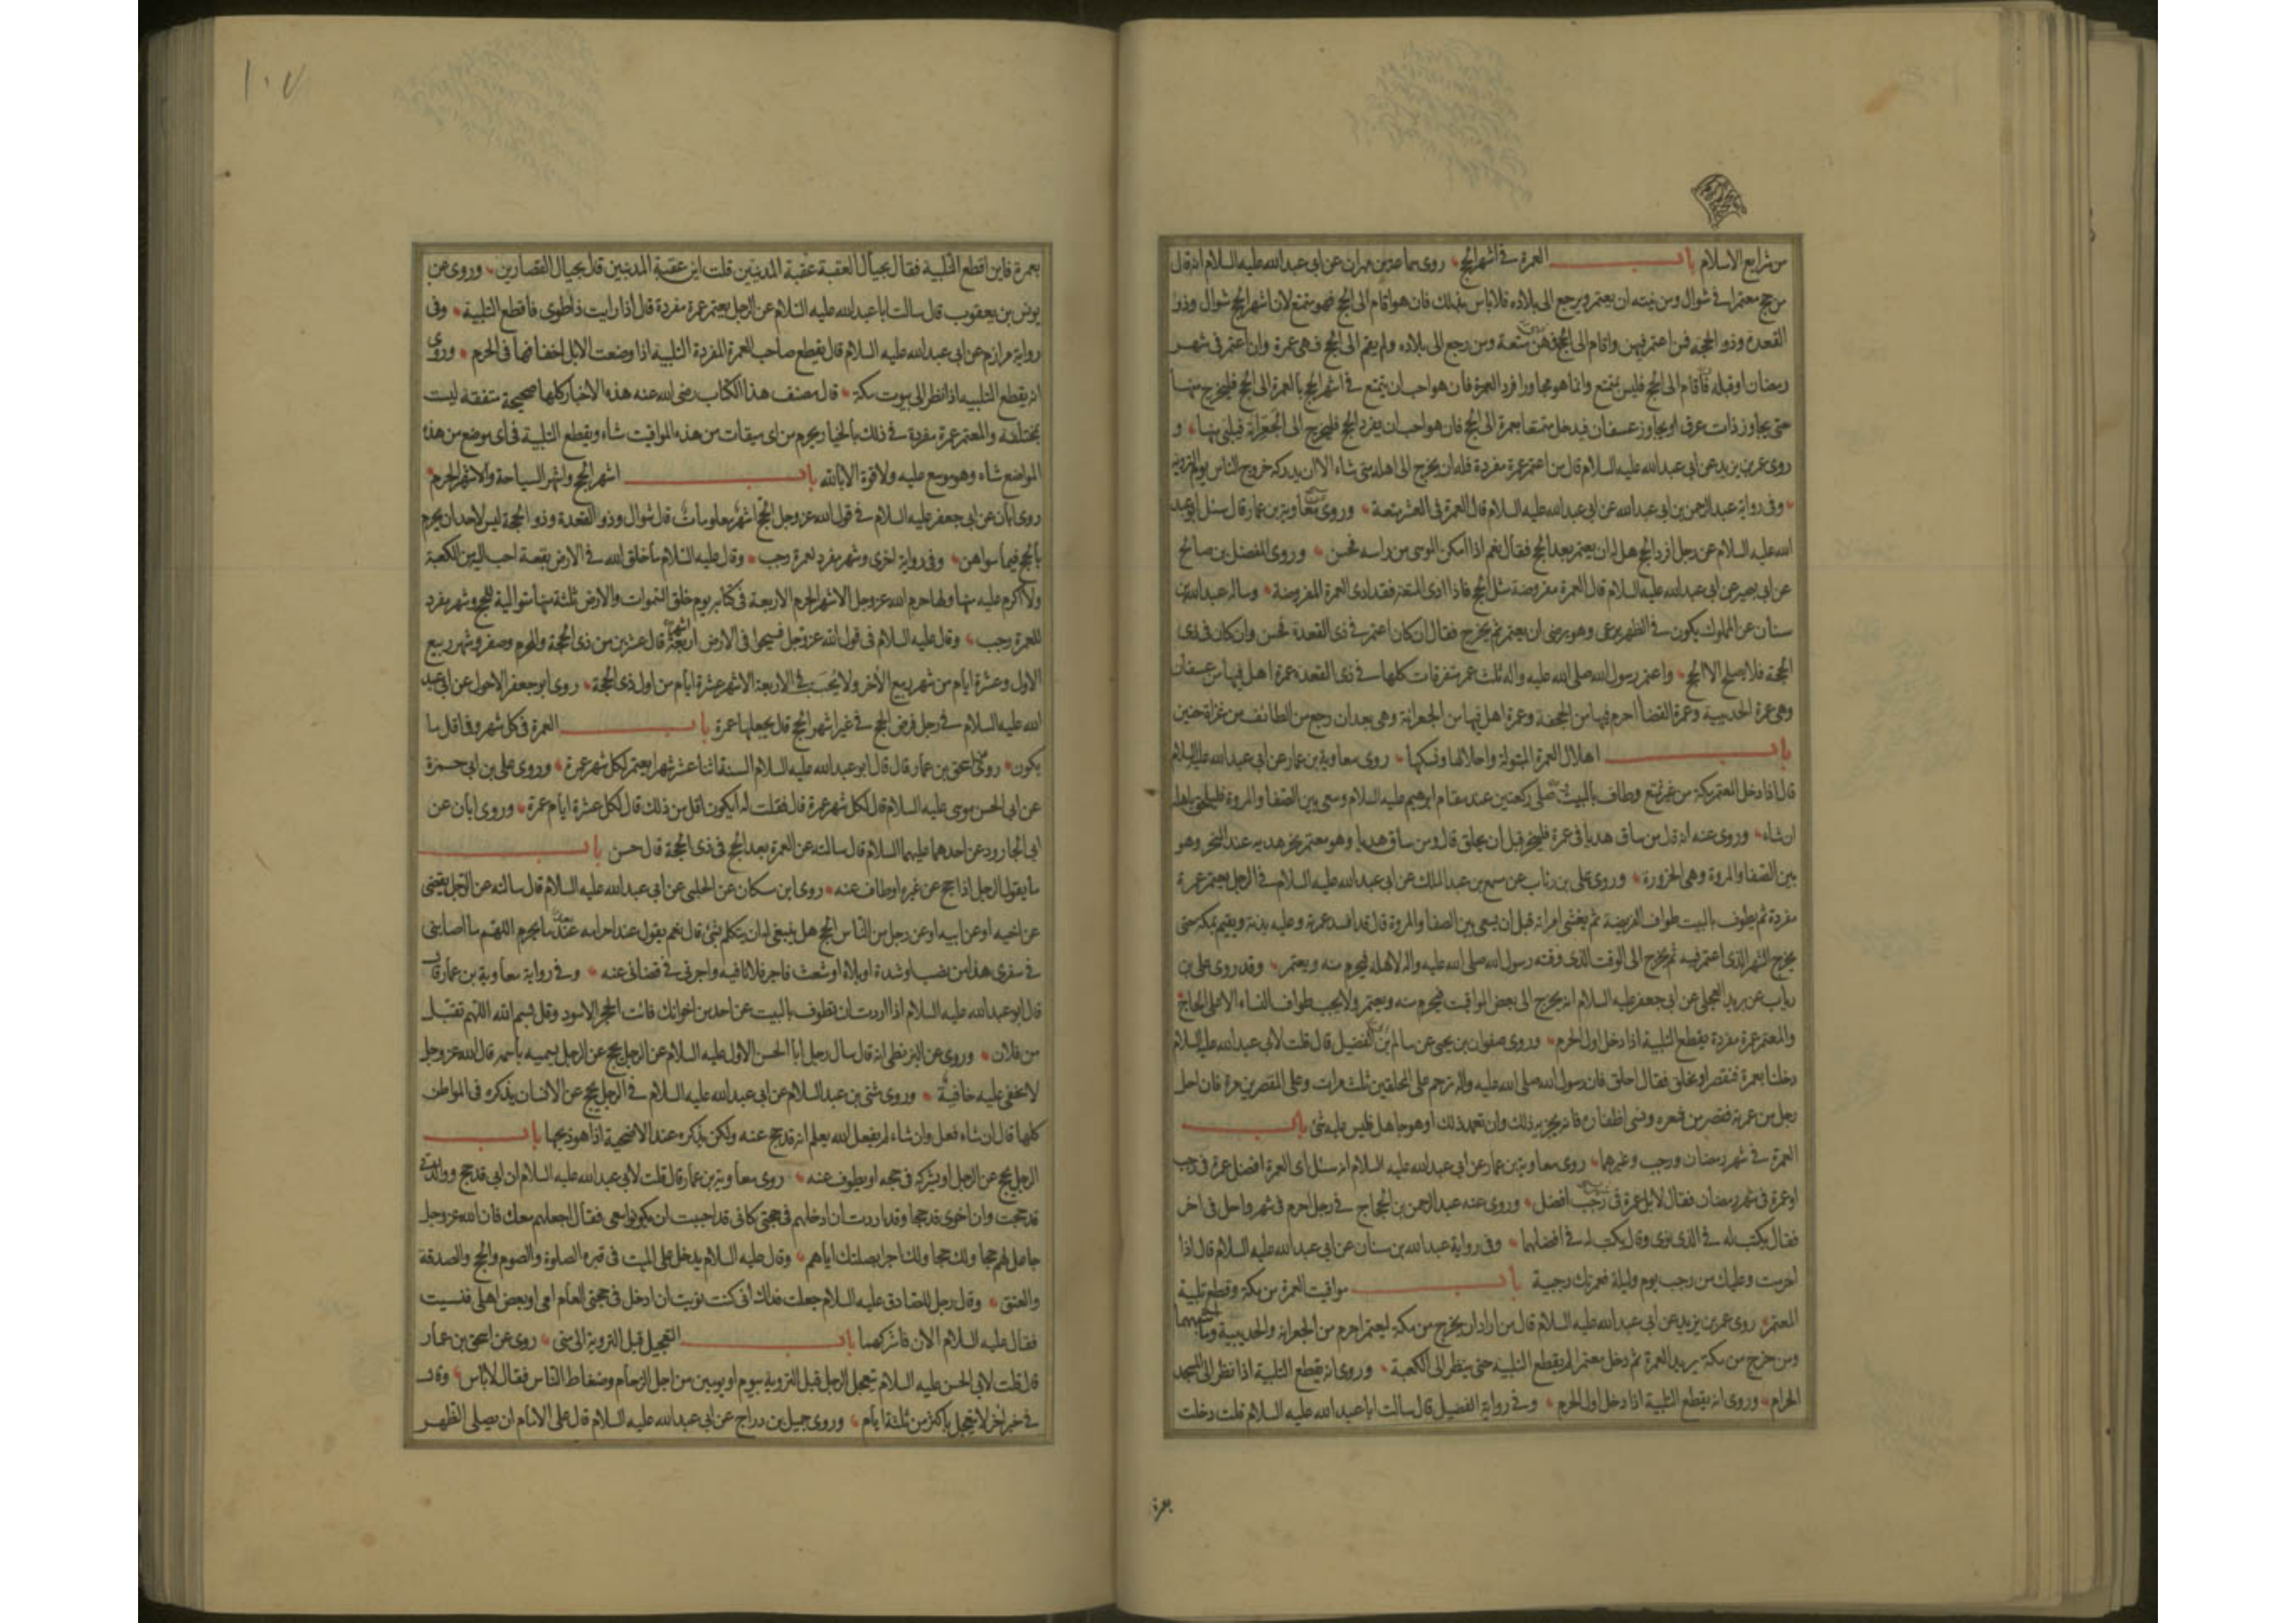 من شرايع الاسلام باب العمرة فى اشهر الحج روى سماعة بن مهران عن ابى عبد الله عليه السلام انه قال
من حج معتمرا فى شوال ومن نيته ان يعتمر ويرجع الى بلاده فلا باس بذلك فان هو اقام الى الحج فهو متمتع لان اشهر الحج شوال وذو
القعدة وذو الحجة فمن اعتمر فيهن واقام الى الحج فهى متعة ومن رجع الى بلاده ولم يقم الى الحج فهى عمرة وان اعتمر فى شهر
رمضان او قبله فاقام الى الحج فليس بمتمتع وانما هو مجاور افرد العمرة فان هو احب ان يتمتع فى اشهر الحج بالعمرة الى الحج فليخرج منها
حتى يجاوز ذات عرق او يجاوز عسفان فيدخل متمتعا بعمرة الى الحج فان هو احب ان يفرد الحج فليخرج الى الجعرانة فيلبى منها و
روى عمر بن يزيد عن ابى عبد الله عليه السلام قال من اعتمر عمرة مفردة فله ان يخرج الى اهله متى شاء الا ان يدركه خروج الناس يوم التروية
وفى رواية عبد الرحمن بن ابى عبد الله عن ابى عبد الله عليه السلام قال العمرة فى العشر متعة وروى معاوية بن عمار قال سئل ابو عبد
الله عليه السلام عن رجل افرد الحج هل له ان يعتمر بعد الحج فقال نعم اذا امكن الموسى من راسه فحسن وروى المفضل بن صالح
عن ابى بصير عن ابى عبد الله عليه السلام قال العمرة مفروضة مثل الحج فاذا ادى المتعة فقد ادى العمرة المفروضة وساله عبد الله بن
سنان عن المملوك يكون فى الظهر يرعى وهو يرضى ان يعتمر ثم يخرج فقال ان كان اعتمر فى ذى القعدة فحسن وان كان فى ذى
الحجة فلا يصلح الا الحج واعتمر رسول الله صلى الله عليه واله ثلث عمر متفرقات كلها فى ذى القعدة عمرة اهل فيها من عسفان
وهى عمرة الحديبية وعمرة القضا احرم فيها من الجحفة وعمرة اهل فيها من الجعرانة وهى بعد ان رجع من الطائف من غزاة حنين
باب اهلال العمرة المبتولة واحلالها ونسكها روى معاوية بن عمار عن ابى عبد الله عليه السلام
قال اذا دخل المعتمر مكة من غير تمتع وطاف بالبيت وصلى ركعتين عند مقام ابرهيم عليه السلام وسعى بين الصفا والمروة فليلحق باهله
ان شاء وروى عنه انه قال من ساق هديا فى عمرة فلينحر قبل ان يحلق قال ومن ساق هديا وهو معتمر نحر هديه عند المنحر وهو
بين الصفا والمروة وهى الحزورة وروى على بن رئاب عن مسمع بن عبد الملك عن ابى عبد الله عليه السلام فى الرجل يعتمر عمرة
مفردة ثم يطوف بالبيت طواف الفريضة ثم يغشى امراته قبل ان يسعى بين الصفا والمروة قال قد افسد عمرته وعليه بدنة ويقيم بمكة حتى
يخرج الشهر الذى اعتمر فيه ثم يخرج الى الوقت الذى وقته رسول الله صلى الله عليه واله لاهله فيحرم منه ويعتمر وقد روى على بن
رئاب عن بريد العجلى عن ابى جعفر عليه السلام انه يخرج الى بعض المواقيت فيحرم منه ويعتمر ولا يجب طواف النساء الا على الحاج
والمعتمر عمرة مفردة يقطع التلبية اذا دخل اول الحرم وروى صفوان بن يحيى عن سالم بن الفضيل قال قلت لابى عبد الله عليه السلام
دخلنا بعمرة فنقصر او نحلق فقال احلق فان رسول الله صلى الله عليه واله ترحم على المحلقين ثلث مرات وعلى المقصرين مرة فان احل
رجل من عمرته فقصر من شعره ونسى اظفاره فانه يجزيه ذلك وان تعمد ذلك او هو جاهل فليس عليه شئ باب
العمرة فى شهر رمضان ورجب وغيرهما روى معاوية بن عمار عن ابى عبد الله عليه السلام انه سئل اى العمرة افضل عمرة فى رجب
او عمرة فى شهر رمضان فقال لا بل عمرة فى رجب افضل وروى عنه عبد الرحمن بن الحجاج فى رجل احرم فى شهر واحل فى اخر
فقال يكتب له فى الذى نوى وقال يكتب له فى افضلهما وفى رواية عبد الله بن سنان عن ابى عبد الله عليه السلام قال اذا
احرمت وعليك من رجب يوم وليلة فعمرتك رجبية باب مواقيت العمرة من مكة وقطع تلبية
المعتمر روى عمر بن يزيد عن ابى عبد الله عليه السلام قال من اراد ان يخرج من مكة ليعتمر احرم من الجعرانة والحديبية وما اشبههما
ومن خرج من مكة يريد العمرة ثم دخل معتمرا لم يقطع التلبية حتى ينظر الى الكعبة وروى انه يقطع التلبية اذا نظر الى المسجد
الحرام وروى انه يقطع التلبية اذا دخل اول الحرم وفى رواية الفضيل قال سالت ابا عبد الله عليه السلام قلت دخلت
بعمرة
١٠٧
بعمرة فاين اقطع التلبية فقال بحيال العقبة عقبة المدنيين قلت اين عقبة المدنيين قال بحيال القصارين وروى عن
يونس بن يعقوب قال سالت ابا عبد الله عليه السلام عن الرجل يعتمر عمرة مفردة قال اذا رايت ذا طوى فاقطع التلبية وفى
رواية مرازم عن ابى عبد الله عليه السلام قال يقطع صاحب العمرة المفردة التلبية اذا وضعت الابل اخفافها فى الحرم وروى
انه يقطع التلبية اذا نظر الى بيوت مكة قال مصنف هذا الكتاب رضى الله عنه هذه الاخبار كلها صحيحة متفقة ليست
بمختلفة والمعتمر عمرة مفردة فى ذلك بالخيار يحرم من اى ميقات من هذه المواقيت شاء ويقطع التلبية فى اى موضع من هذه
المواضع شاء وهو موسع عليه ولا قوة الا بالله باب اشهر الحج واشهر السياحة والاشهر الحرم
روى ابان عن ابى جعفر عليه السلام فى قول الله عز وجل الحج اشهر معلومات قال شوال وذو القعدة وذو الحجة ليس لاحد ان يحرم
بالحج فيما سواهن وفى رواية اخرى وشهر مفرد لعمرة رجب وقال عليه السلام ما خلق الله فى الارض بقعة احب اليه من الكعبة
ولا اكرم عليه منها ولها حرم الله عز وجل الاشهر الحرم الاربعة فى كتابه يوم خلق السموات والارض ثلثة منها متوالية للحج وشهر مفرد
للعمرة رجب وقال عليه السلام فى قول الله عز وجل فسيحوا فى الارض اربعة اشهر قال عشرين من ذى الحجة والمحرم وصفر وشهر ربيع
الاول وعشرة ايام من شهر ربيع الاخر ولا يحسب فى الاربعة الاشهر عشرة ايام من اول ذى الحجة روى ابو جعفر الاحول عن ابى عبد
الله عليه السلام فى رجل فرض الحج فى غير اشهر الحج قال يجعلها عمرة باب العمرة فى كل شهر وفى اقل ما
يكون روى اسحق بن عمار قال قال ابو عبد الله عليه السلام السنة اثنا عشر شهرا يعتمر لكل شهر عمرة وروى على بن ابى حمزة
عن ابى الحسن موسى عليه السلام قال لكل شهر عمرة قال فقلت له ايكون اقل من ذلك قال لكل عشرة ايام عمرة وروى ابان عن
ابى الجارود عن احدهما عليهما السلام قال سالته عن العمرة بعد الحج فى ذى الحجة قال حسن باب
ما يقول الرجل اذا حج عن غيره او طاف عنه روى ابن مسكان عن الحلبى عن ابى عبد الله عليه السلام قال سالته عن الرجل يقضى
عن اخيه او عن ابيه او عن رجل من الناس الحج هل ينبغى له ان يتكلم بشئ قال نعم يقول عند احرامه بعد ما يحرم اللهم ما اصابنى
فى سفرى هذا من نصب او شدة او بلاء او شعث فاجر فلانا فيه واجرنى فى قضائى عنه وفى رواية معاوية بن عمار قال
قال ابو عبد الله عليه السلام اذا اردت ان تطوف بالبيت عن احد من اخوانك فائت الحجر الاسود وقل بسم الله اللهم تقبل
من فلان وروى عن البزنطى انه قال سال رجل ابا الحسن الاول عليه السلام عن الرجل يحج عن الرجل يسميه باسمه قال الله عز وجل
لا تخفى عليه خافية وروى مثنى بن عبد السلام عن ابى عبد الله عليه السلام فى الرجل يحج عن الانسان يذكره فى المواطن
كلها قال ان شاء فعل وان شاء لم يفعل الله يعلم انه قد حج عنه ولكن يذكره عند الاضحية اذا هو ذبحها باب
الرجل يحج عن الرجل او يشركه فى حجه او يطوف عنه روى معاوية بن عمار قال قلت لابى عبد الله عليه السلام ان ابى قد حج ووالدتى
قد حجت وان اخوى قد حجا وقد اردت ان ادخلهم فى حجتى كانى قد احببت ان يكونوا معى فقال اجعلهم معك فان الله عز وجل
جاعل لهم حجا ولك حجا ولك اجرا بصلتك اياهم وقال عليه السلام يدخل على الميت فى قبره الصلوة والصوم والحج والصدقة
والعتق وقال رجل للصادق عليه السلام جعلت فداك انى كنت نويت ان ادخل فى حجتى العام امى او بعض اهلى فنسيت
فقال عليه السلام الان فاشركهما باب التعجيل قبل التروية الى منى روى عن اسحق بن عمار
قال قلت لابى الحسن عليه السلام تعجل الرجل قبل التروية بيوم او يومين من اجل الزحام وضغاط الناس فقال لا باس وقال
فى خبر اخر لا يتعجل باكثر من ثلثة ايام وروى جميل بن دراج عن ابى عبد الله عليه السلام قال على الامام ان يصلى الظهر